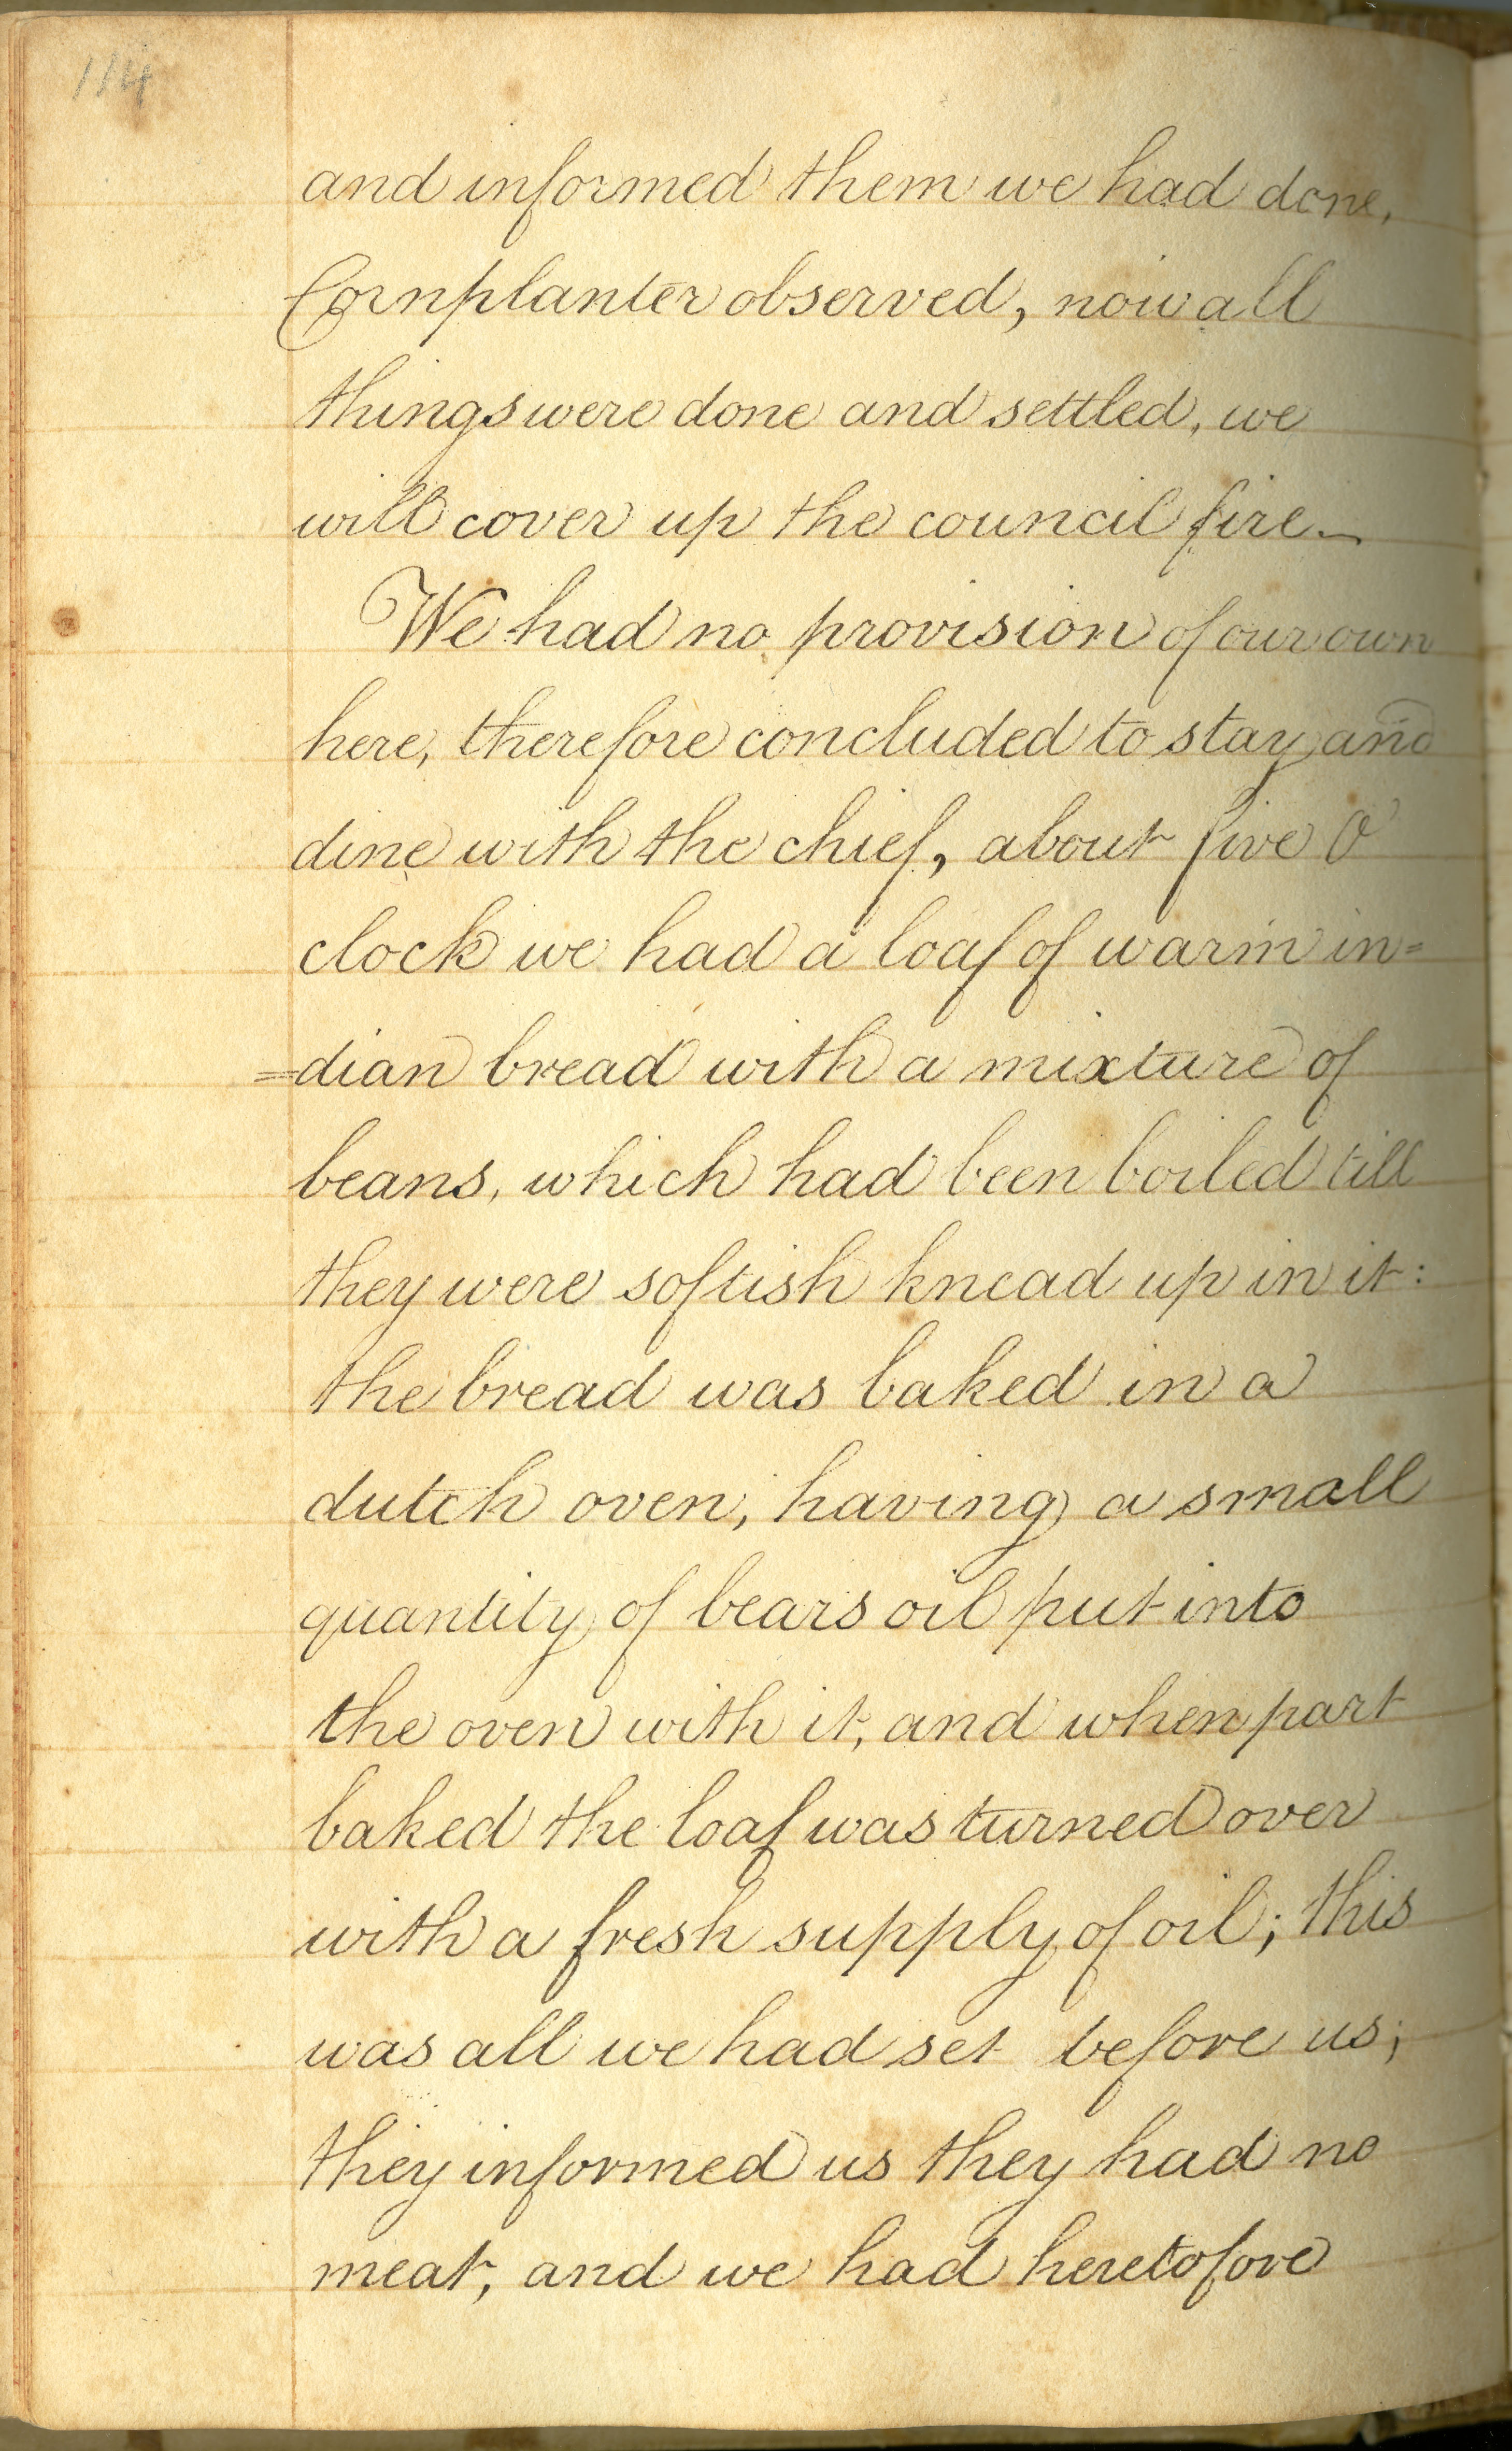 114
and informed them we had done,
Cornplanter observed, now all
things were done and settled, we
will cover up the council fire—
We had no provision of our own
here, therefore concluded to stay and
dine with the chief, about five O'
clock we had a loaf of warm in=
=dian bread with a mixture of
beans, which had been boiled till
they were softish knead up in it:
the bread was baked in a
dutch oven, having a small
quantity of bears oil put into
the oven with it, and when part
baked the loaf was turned over
with a fresh supply of oil; this
was all we had set before us;
they informed us they had no
meat, and we had heretofore